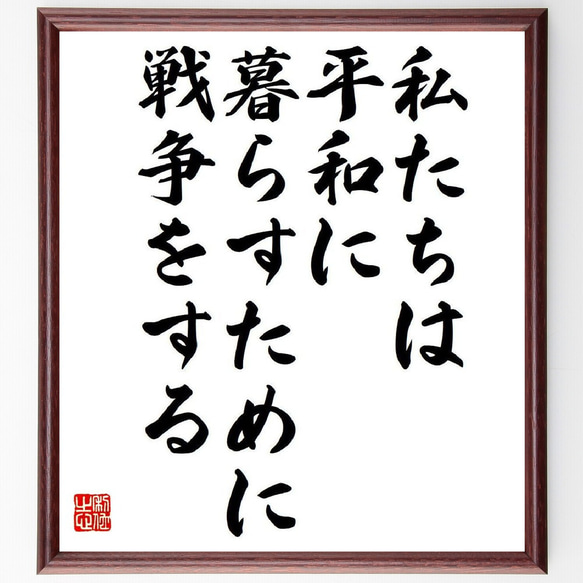 私たちは
平和に
暮らすために
戦争をする